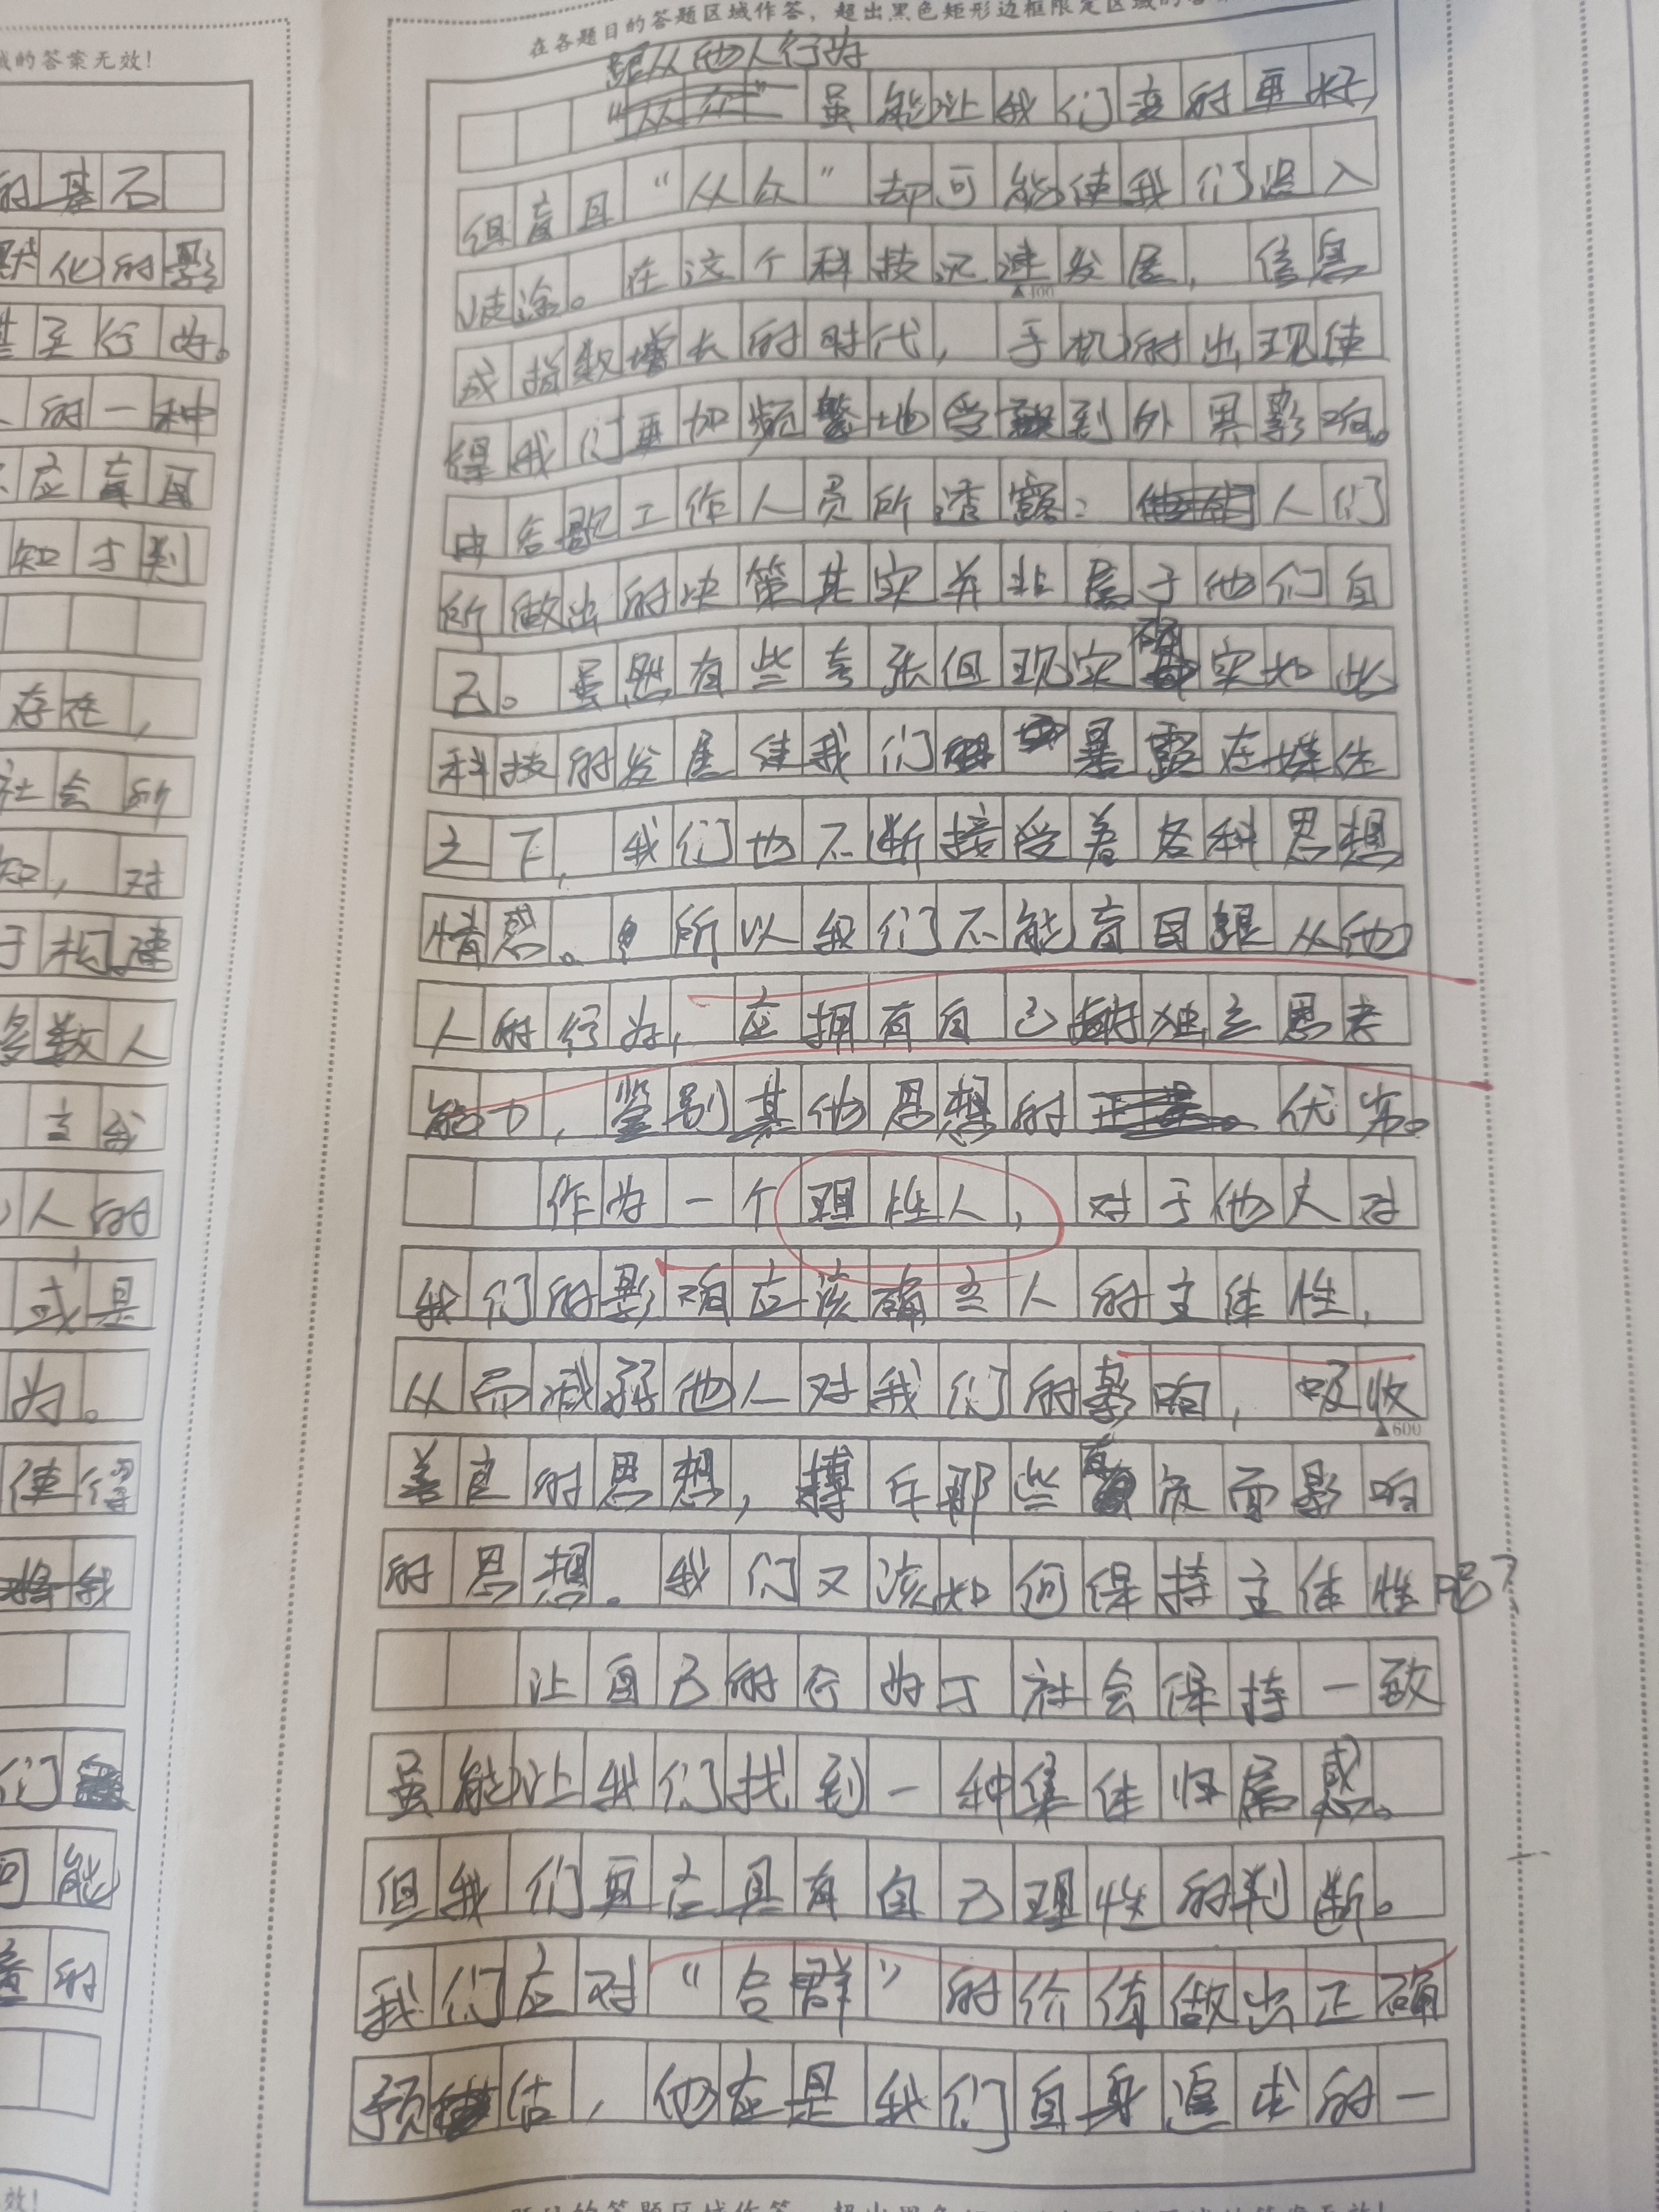 的答案无效!
的基石
默化的影
实行为。
的一种
应盲目
知才判
存在,
社会所
知,对
于构建
多数人
主我
人的
或是
为。
使得
我
们
可能
的
效!
在各题目的答题区域作答,超出黑色矩形边框限定区域的答案
跟从他人行为
虽能让我们变的更好,
但盲目“从众”却可能使我们误入
歧途。在这个科技迅速发展,信息
▲400
成指数增长的时代,手机的出现使
得我们更加频繁地受到外界影响。
由谷歌工作人员所透露:人们
所做出的决策其实并非属于他们自
己。虽然有些夸张但现实确实如此
科技的发展使我们暴露在媒体
之下,我们也不断接受着各种思想
情感。所以我们不能盲目跟从他
人的行为,应拥有自己的独立思考
能力,鉴别其他思想的优劣。
作为一个理性人,对于他人对
我们的影响应该确立人的主体性,
从而减弱他人对我们的影响,吸收
▲600
善良的思想,摒斥那些有负面影响
的思想。我们又该如何保持主体性呢?
让自己的行为于社会保持一致
虽能让我们找到一种集体归属感。
但我们更应具有自己理性的判断。
我们应对“合群”的价值做出正确
预估,他应是我们自身追求的一
题目的答题区域作答,超出黑色